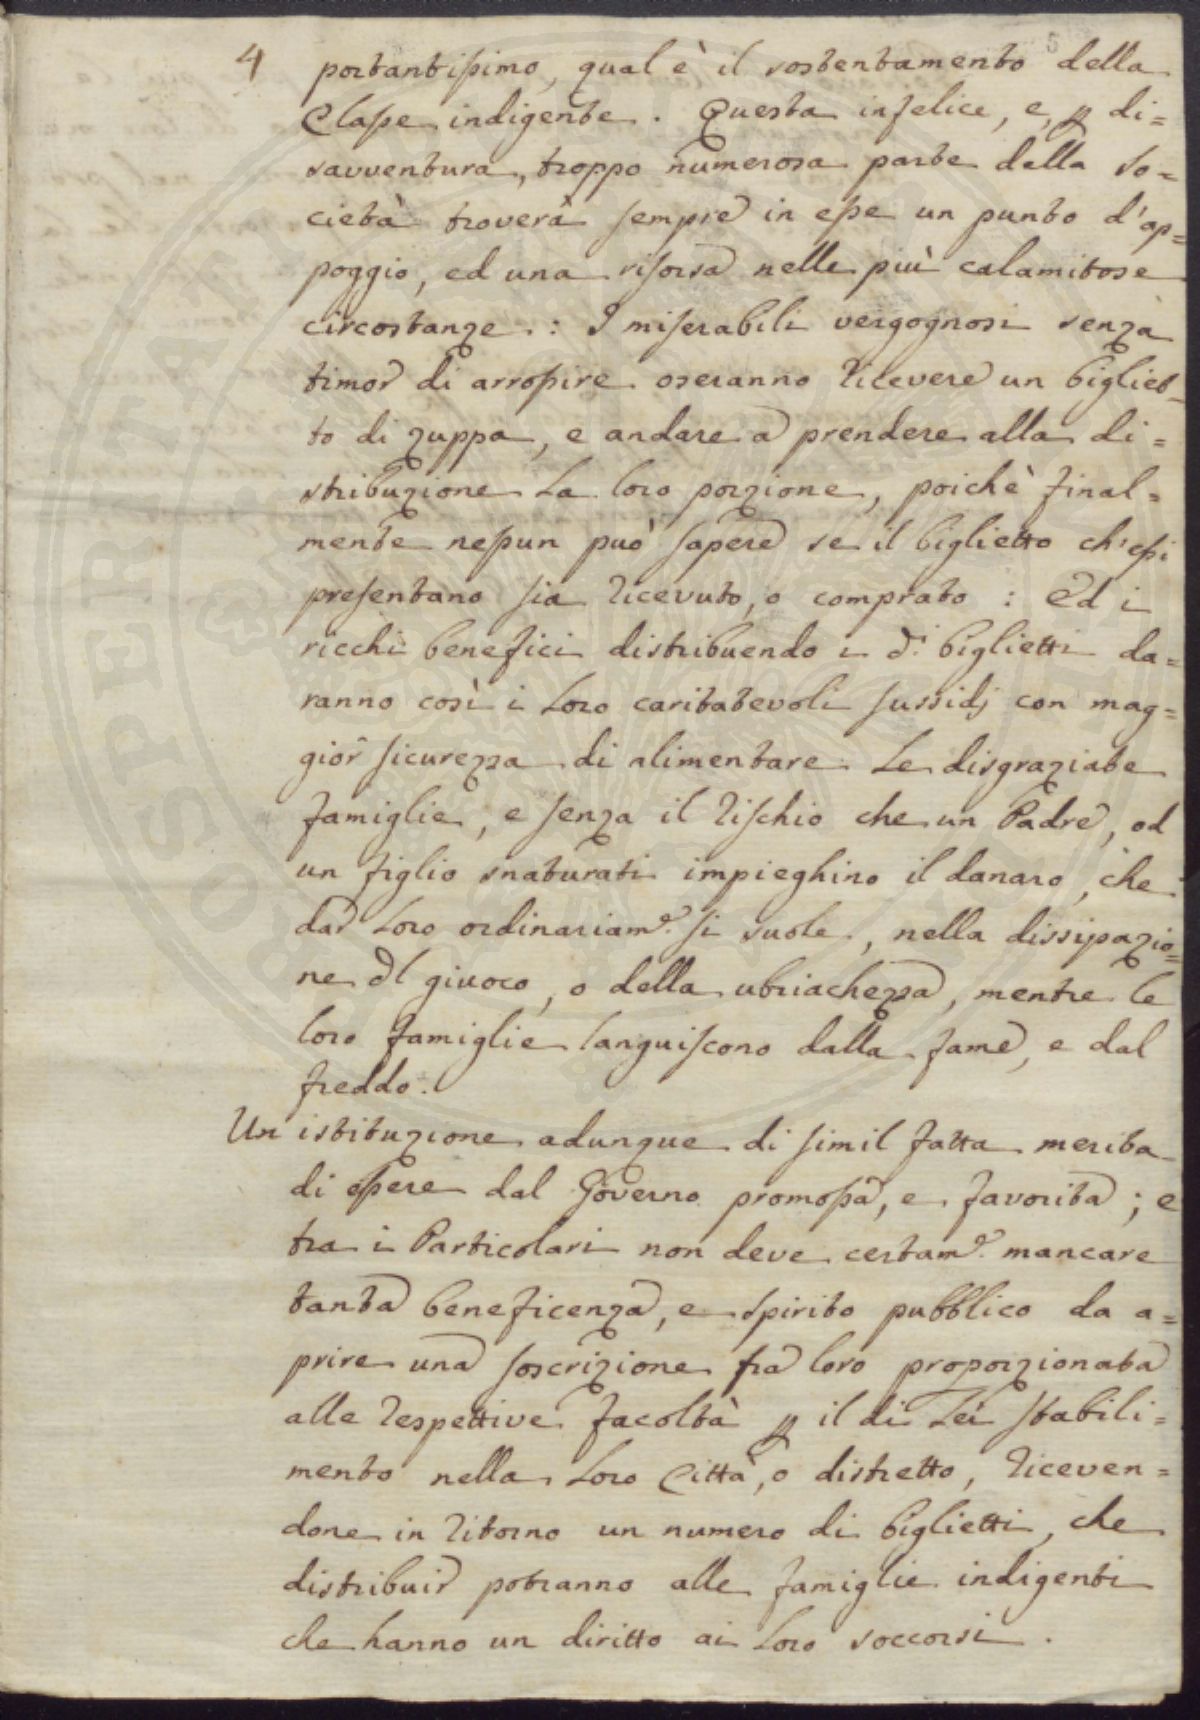 4
portantissimo, qual è il sostentamento della
Classe indigente. Questa infelice, e, p di=
savventura, troppo numerosa parte della So=
cietà troverà sempre in esse un punto d'ap=
poggio, ed una risorsa nelle più calamitose
circostanze: I miserabili vergognosi senza
timor di arrossire oseranno ricevere un bigliet=
to di zuppa, e andare a prendere alla di=
stribuzione la loro porzione, poichè final=
mente nessun può sapere se il biglietto ch'essi
presentano sia ricevuto, o comprato: Ed i
ricchi benefici distribuendo i d.i biglietti da=
ranno così i loro caritatevoli sussidj con mag=
gior sicurezza di alimentare le disgraziate
famiglie, e senza il rischio che un Padre, od
un figlio snaturati impieghino il danaro, che
dar loro ordinariam.e si suole, nella dissipazio=
ne dl giuoco, o della ubriachezza, mentre le
loro famiglie languiscono dalla fame, e dal
freddo.
Un istituzione adunque di simil fatta merita
di essere dal Governo promossa, e favorita; e
tra i Particolari non deve certam.e mancare
tanta beneficenza, e spirito pubblico da a=
prire una soscrizione fra loro proporzionata
alle respettive facoltà p il di Lei stabili=
mento nella loro Città, o distretto, riceven=
done in ritorno un numero di biglietti, che
distribuir potranno alle famiglie indigenti
che hanno un diritto ai loro soccorsi.